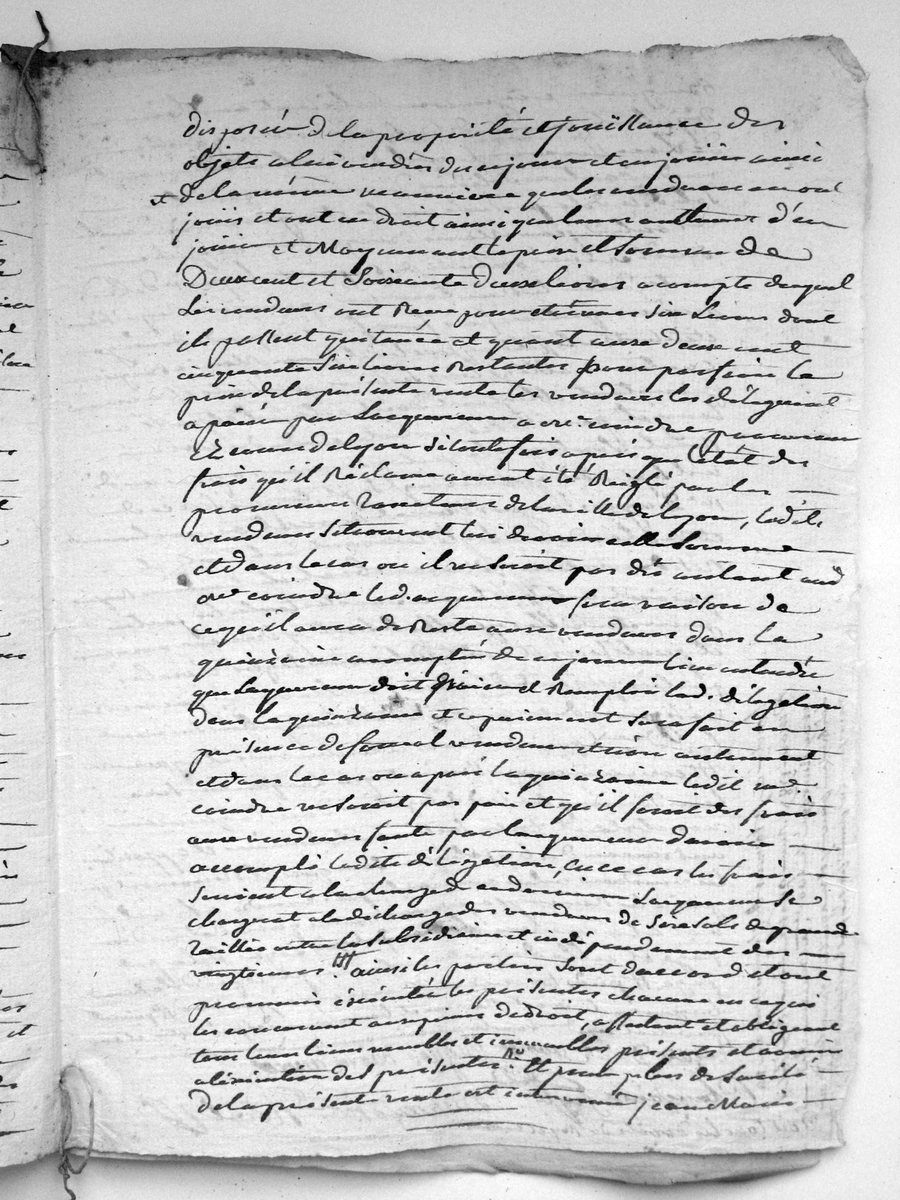 disposée de la propriété et jouissance des
objets a lui vendus de ce jour et en jouir ainsi
de la même maniere que les vendeurs en ont
joui et ont eu droit ainsi que leurs auteurs d'en
jouir et Moyennant le prix et somme de
Deux cent et soixante deux livres a compte duquel
les vendeurs ont Recu pour étrennes six livres dont
ils passent quitance et quant aux deux cent
cinquante six livres Restantes pour parfaire le
prix de la présente vente les vendeurs les déleguent
a païer par l'acquereur a me coindre procureur
Ez cours de lyon si toutefois après que l'état des
frais qu'il Réclame auront été Réiglé par les
procureurs de la ville de lyon, lesdits
vendeurs se trouvent lui devoir cette somme
et dans le cas ou il ne seroit pas dû autant aud
me coindre led. acquereur fera raison de
ce qu'il aura de Reste aux vendeurs dans la
quinzaine a compter de ce jour bien entendu
que l'acquereur doit faire et Remplir lad. délégation
dans la quinzaine et ce paiement sera fait en
présence de vendeurs et non autrement
et dans le cas ou après la quinzaine ledit me
coindre ne seroit pas païé et qu'il feroit des frais
aux vendeurs faute par l'acquereur d'avoir
accompli ladite délégation, en ce cas les frais
seroient a la charge de ce dernier l'acquereur se
chargeant a la décharge des vendeurs de
tailles outre le subsidiairement indépendamment des
vingtiemes. ainsi les parties sont d'accord et ont
promis éxécuter les présentes chacune en ce qui
les concernent aux peines de droit, affectant et obligeant
tous leurs biens meubles et immeubles présents et avenir
a l'éxécution des présentes. Et pour plus de sureté
de la présente vente est intervenu jean Marie